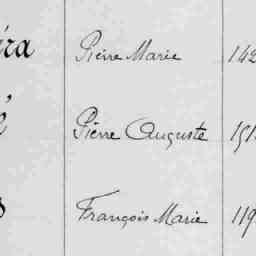 éra Pierre Marie 142
é Pierre Auguste 151
s François Marie 119